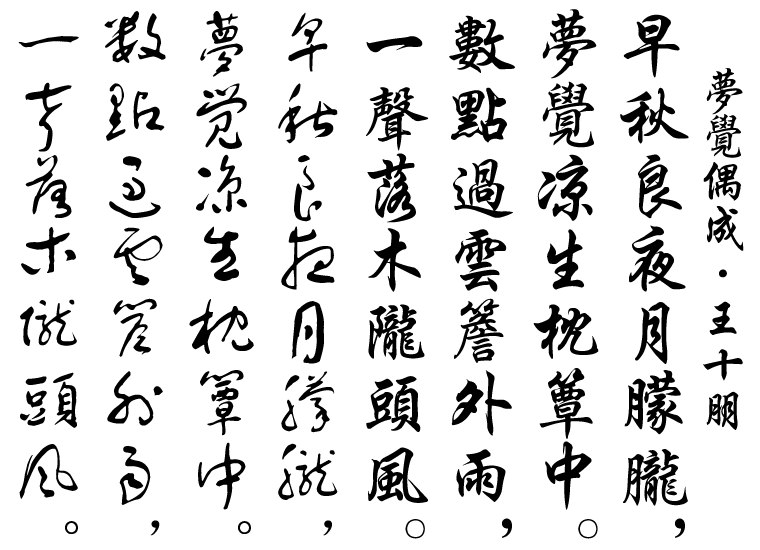 夢覺偶成·王十朋
早秋良夜月朦朧，
夢覺凉生枕簟中。
數點過雲簷外雨，
一聲落木隴頭風。
早秋良夜月朦朧，
夢覺凉生枕簟中。
數點過雲簷外雨，
一聲落木隴頭風。